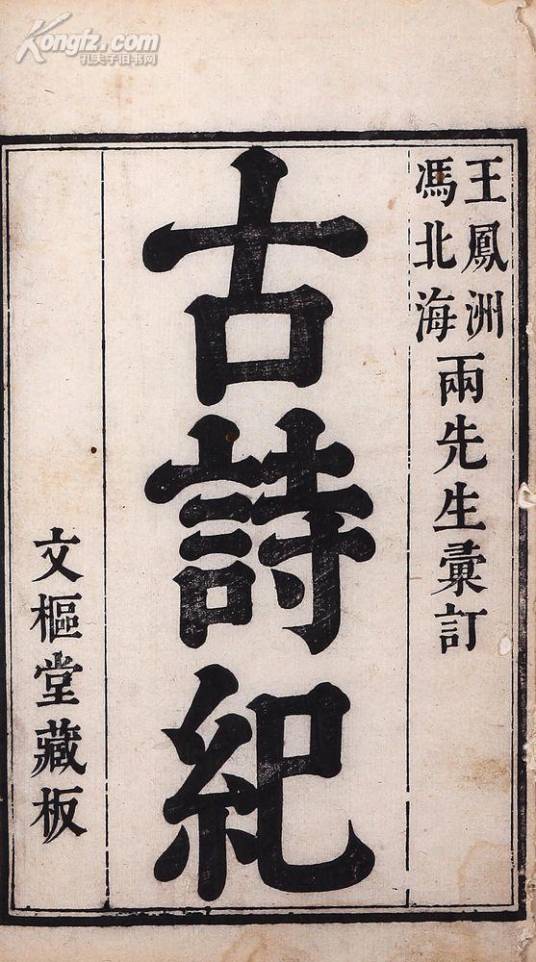 Kongfz.com
孔夫子旧书网
王鳳洲
馮北海
兩先生彙訂
古詩紀
文樞堂藏板